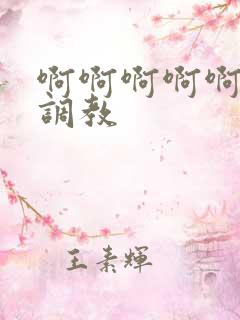 啊啊啊啊啊
調教
王素輝